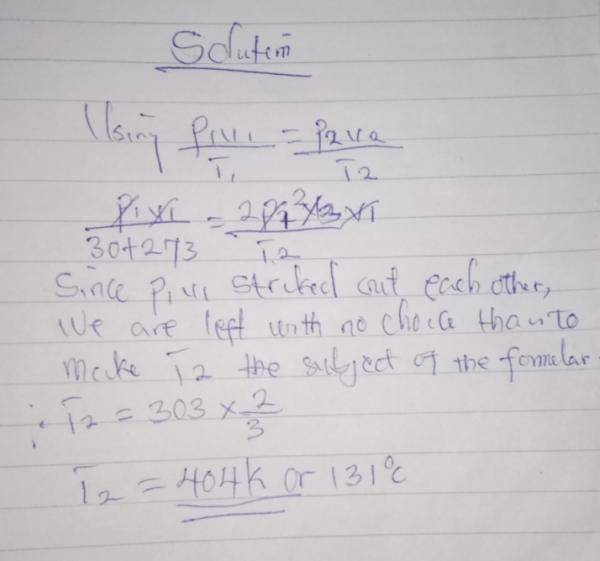 Solution
Using P₁V₁/T₁ = P₂V₂/T₂
P₁V₁/30+273 = 2P₁ V₁/T₂
Since P₁V₁ striked out each other,
we are left with no choice than to
make T₂ the subject of the formular
∴ T₂ = 303 × 2/3
T₂ = 404K or 131°C